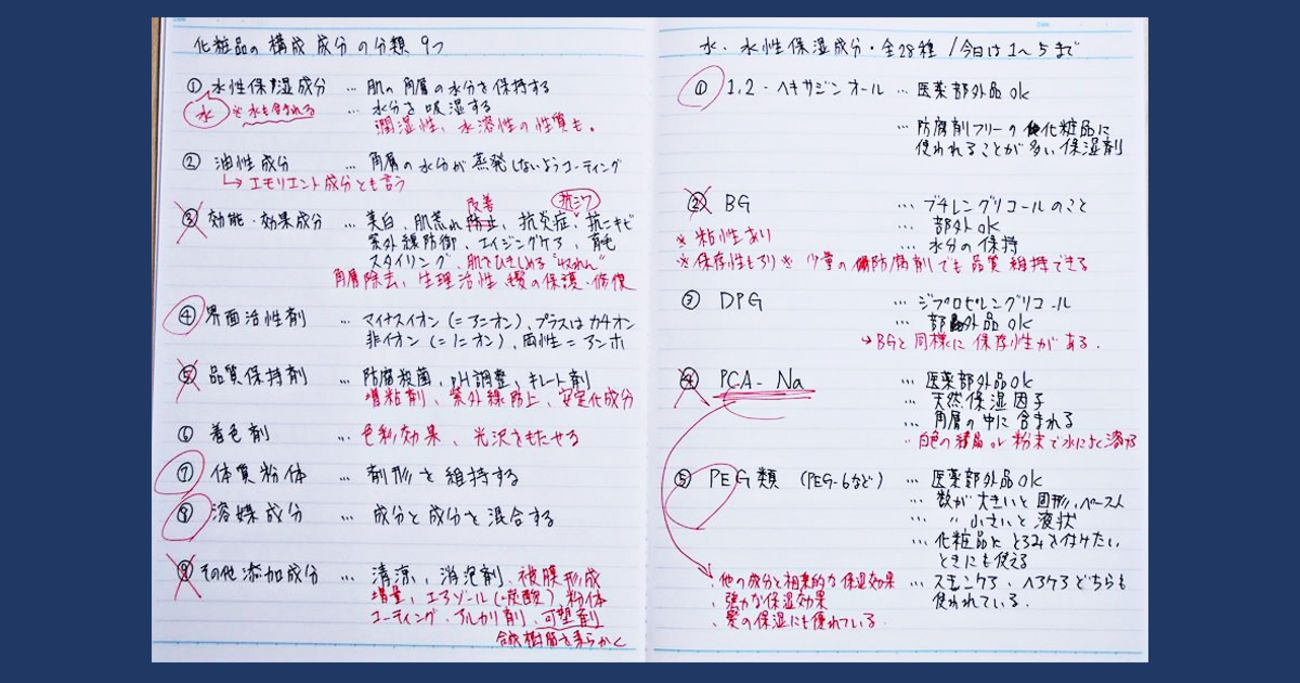 化粧品の構成成分の分類 9つ
① 水性保湿成分 … 肌の角層の水分を保持する
水 ※水も含まれる … 水分を吸湿する
潤湿性、水溶性の性質も。
② 油性成分 … 角層の水分が蒸発しないようコーティング
↳ エモリエント成分とも言う
改善 抗シワ
③ 効能・効果成分 … 美白、肌荒れ防止、抗炎症、抗ニキビ
紫外線防御、エイジングケア、育毛
スタイリング、肌をひきしめる "収れん"
角層除去、生理活性、髪の保護・修復
④ 界面活性剤 … マイナスイオン (=アニオン)、プラスはカチオン
非イオン (=ノニオン)、両性=アンホ
⑤ 品質保持剤 … 防腐殺菌、pH調整、キレート剤
増粘剤、紫外線防止、安定化成分
⑥ 着色剤 … 色彩効果、光沢をもたせる
⑦ 体質粉体 … 剤形を維持する
⑧ 溶媒成分 … 成分と成分を混合する
⑨ その他添加成分 … 清涼、消泡剤、被膜形成
増量、エアゾール(・炭酸) 粉体
コーティング、アルカリ剤、可塑剤
合成樹脂を柔らかく
水・水性保湿成分・全28種 /今日は1〜5まで
① 1.2-ヘキサジンオール … 医薬部外品ok
… 防腐剤フリーの化粧品に
使われることが多い保湿剤
② BG … ブチレングリコールのこと
… 部外ok
※粘性あり … 水分の保持
※保存性もあり※ 少量の防腐剤でも品質維持できる
③ DPG … ジプロピレングリコール
… 部外品ok
→BGと同様に保存性がある.
④ PCA-Na … 医薬部外品ok
… 天然保湿因子
… 角層の中に含まれる
… 白色の結晶or粉末で水によく溶ける
⑤ PEG類 (PEG-6など) … 医薬部外品ok
… 数が大きいと固形、ペースト
… 〃 小さいと液状
… 化粧品にとろみを付けたい
ときにも使える
… スキンケア、ヘアケアどちらも
使われている.
、他の成分と相乗的な保湿効果
、強力な保湿効果
、髪の保湿にも優れている.